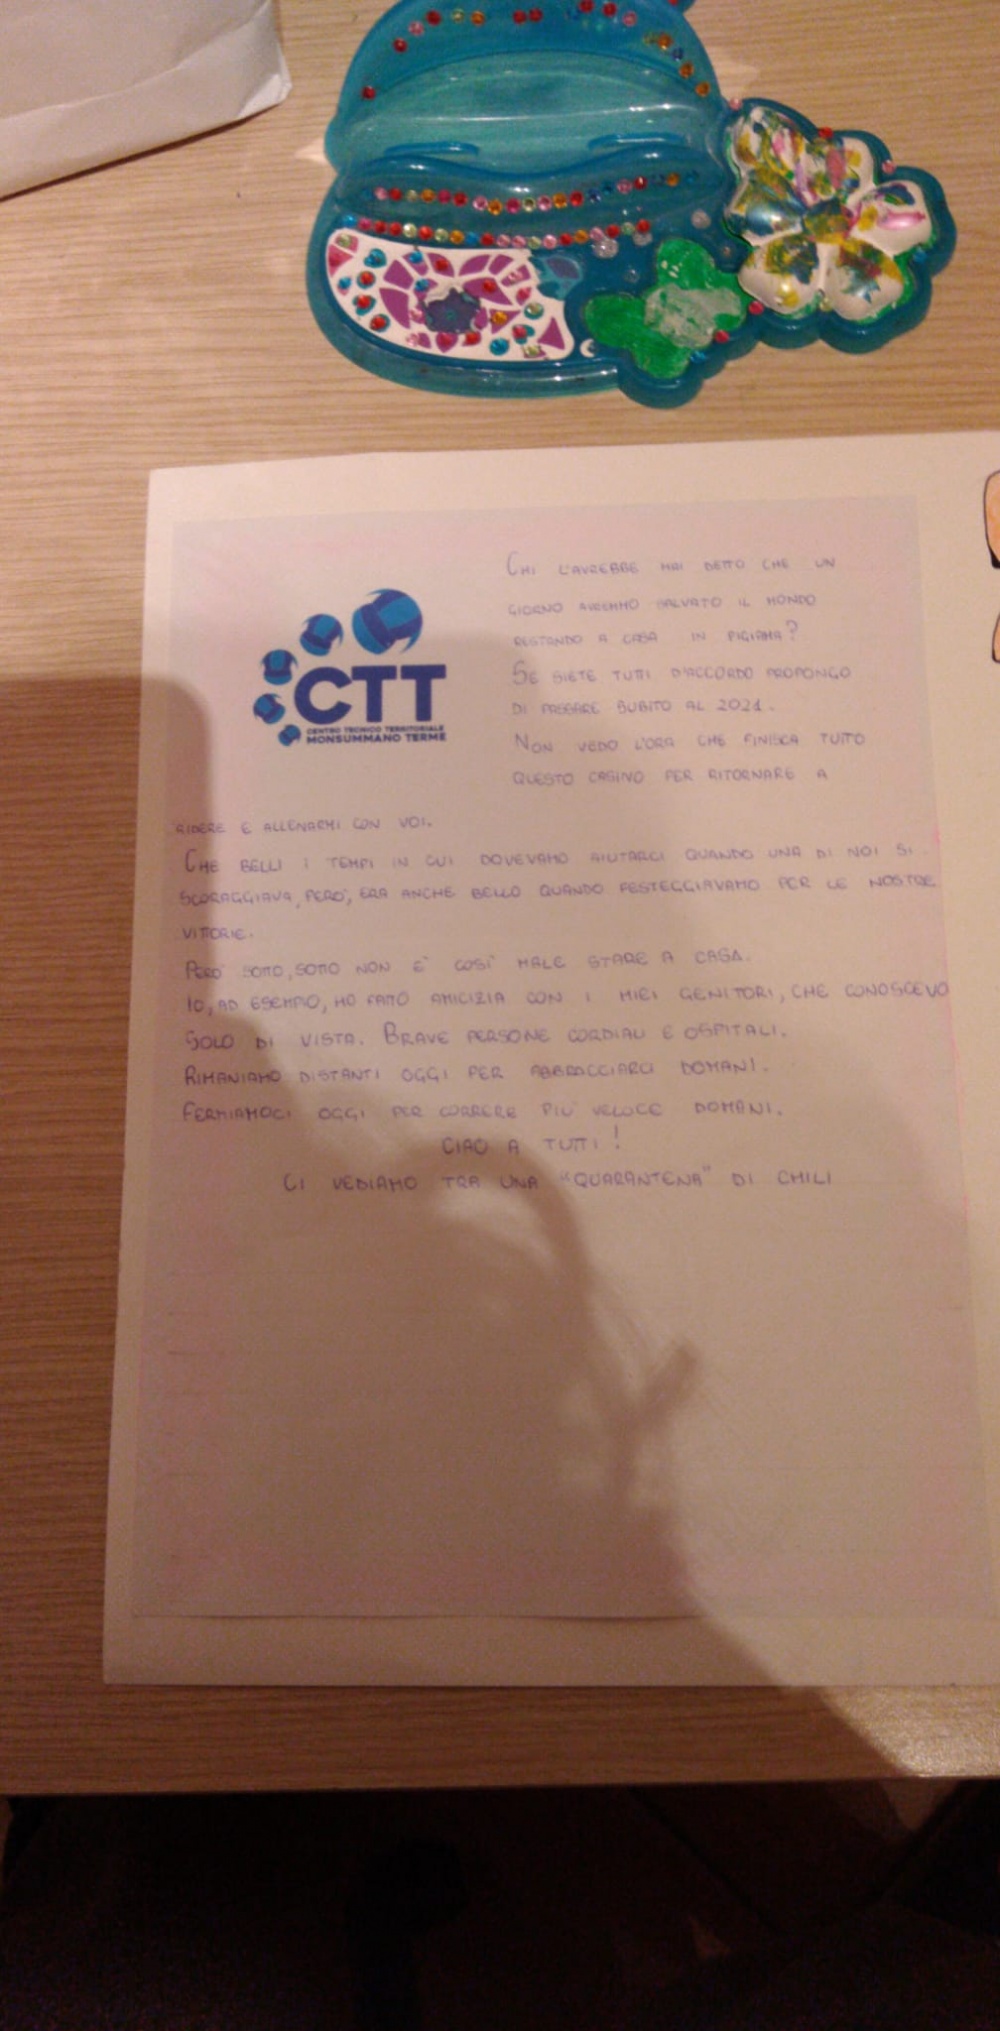 CTT
CENTRO TECNICO TERRITORIALE
MONSUMMANO TERME
CHI L'AVREBBE MAI DETTO CHE UN
GIORNO AVREMMO SALVATO IL MONDO
RESTANDO A CASA IN PIGIAMA?
SE SIETE TUTTI D'ACCORDO PROPONGO
DI PASSARE SUBITO AL 2021.
NON VEDO L'ORA CHE FINISCA TUTTO
QUESTO CASINO PER RITORNARE A
RIDERE E ALLENARMI CON VOI.
CHE BELLI I TEMPI IN CUI DOVEVAMO AIUTARCI QUANDO UNA DI NOI SI
SCORAGGIAVA, PERO', ERA ANCHE BELLO QUANDO FESTEGGIAVAMO PER LE NOSTRE
VITTORIE.
PERO' SOTTO, SOTTO NON E' COSI' MALE STARE A CASA.
IO, AD ESEMPIO, HO FATTO AMICIZIA CON I MIEI GENITORI, CHE CONOSCEVO
SOLO DI VISTA. BRAVE PERSONE CORDIALI E OSPITALI.
RIMANIAMO DISTANTI OGGI PER ABBRACCIARCI DOMANI.
FERMIAMOCI OGGI PER CORRERE PIU' VELOCE DOMANI.
CIAO A TUTTI!
CI VEDIAMO TRA UNA "QUARANTENA" DI CHILI